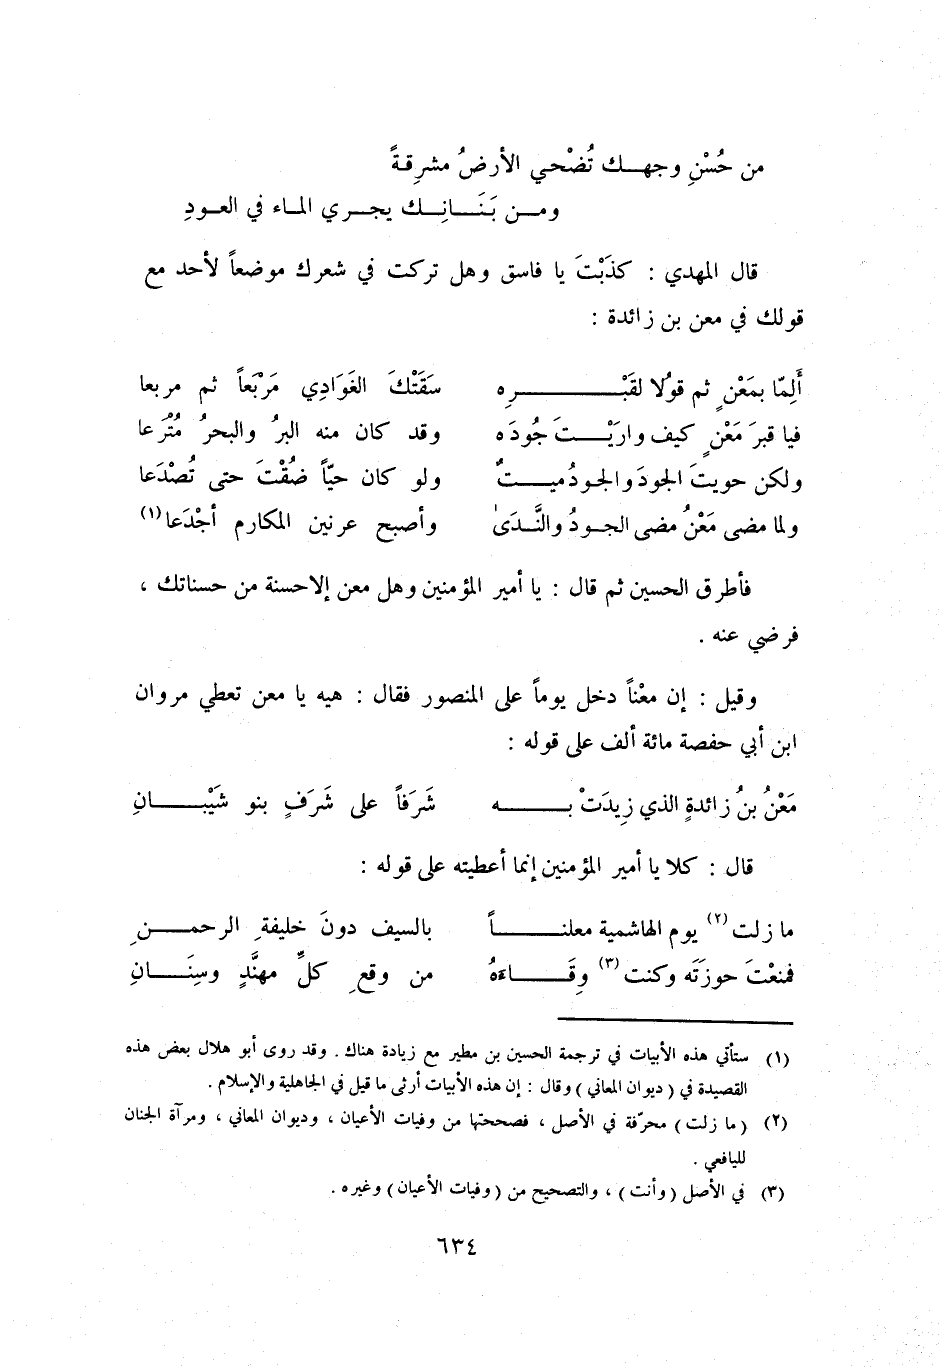 من حُسْنِ وجهك تُضْحي الأرضُ مشرِقةً
ومن بَنَانِك يجري الماء في العودِ
قال المهدي : كذَبْتَ يا فاسق وهل تركت في شعرك موضعاً لأحد مع
قولك في معن بن زائدة :
أَلِمّا بمَعْنٍ ثم قولُا لقَبْرِه سَقَتْكَ الغَوَادِي مَرْبَعاً ثم مربعا
فيا قبرَ مَعْنٍ كيف وارَيْتَ جُودَه وقد كان منه البرُ والبحرُ مُتْرَعا
ولكن حويتَ الجودَ والجودُ ميتٌ ولو كان حيّاً ضُقْتَ حتى تُصْدَعا
ولما مضى مَعْنُ مضى الجودُ والنَّدَىٰ وأصبح عرنين المكارم أجْدَعا(١)
فأطرق الحسين ثم قال : يا أمير المؤمنين وهل معن إلا حسنة من حسناتك ،
فرضي عنه .
وقيل : إن معْناً دخل يوماً على المنصور فقال : هيه يا معن تعطي مروان
ابن أبي حفصة مائة ألف على قوله :
مَعْنُ بنُ زائدةٍ الذي زِيدَتْ به شَرَفاً على شَرَفٍ بنو شَيْبَانِ
قال : كلا يا أمير المؤمنين إنما أعطيته على قوله :
ما زلت(٢) يوم الهاشمية معلناً بالسيف دونَ خليفةِ الرحمنِ
فمنعْتَ حوزَتَه وكنت(٣) وِقَاءَهُ من وقعِ كلِّ مهنَّدٍ وسِنَانِ
(١) ستأتي هذه الأبيات في ترجمة الحسين بن مطير مع زيادة هناك . وقد روى أبو هلال بعض هذه
القصيدة في (ديوان المعاني) وقال : إن هذه الأبيات أرثى ما قيل في الجاهلية والإسلام .
(٢) (ما زلت) محرّفة في الأصل ، فصححتها من وفيات الأعيان ، وديوان المعاني ، ومرآة الجنان
لليافعي .
(٣) في الأصل (وأنت) ، والتصحيح من (وفيات الأعيان) وغيره .
٦٣٤